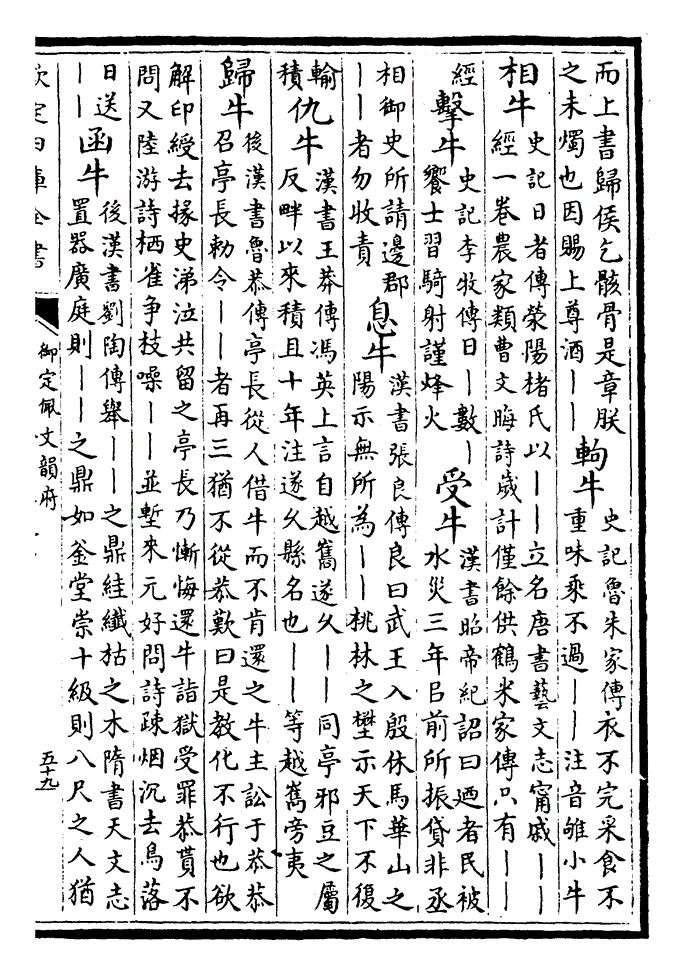 而上書歸侯乞骸骨是章朕
之未燭也因賜上尊酒丨丨
軥牛
史記魯朱家傳衣不完采食不
重味乘不過丨丨注音雊小牛
相牛
史記日者傳滎陽褚氏以丨丨立名唐書藝文志甯戚丨丨
經一卷農家類曹文晦詩歲計僅餘供鶴米家傳只有丨丨
經
擊牛
史記李牧傳日丨數丨
饗士習騎射謹烽火
受牛
漢書昭帝紀詔曰廼者民被
水災三年㠯前所振貸非丞
相御史所請邊郡
丨丨者勿收責
息牛
漢書張良傳良曰武王入殷休馬華山之
陽示無所為丨丨桃林之壄示天下不復
輸
積
仇牛
漢書王莽傳馮英上言自越嶲遂久丨丨同亭邪豆之屬
反畔以來積且十年注遂久縣名也丨丨等越嶲旁夷
歸牛
後漢書魯恭傳亭長從人借牛而不肯還之牛主訟于恭恭
召亭長勅令丨丨者再三猶不從恭歎曰是教化不行也欲
解印綬去掾史涕泣共留之亭長乃慚悔還牛詣獄受罪恭貰不
問又陸游詩栖雀争枝噪丨丨並塹來元好問詩疎烟沉去鳥落
日送
丨丨
函牛
後漢書劉陶傳舉丨丨之鼎絓纖枯之木隋書天文志
置器廣庭則丨丨之鼎如釜堂崇十級則八尺之人猶
欽定四庫全書
御定佩文韻府
五十九